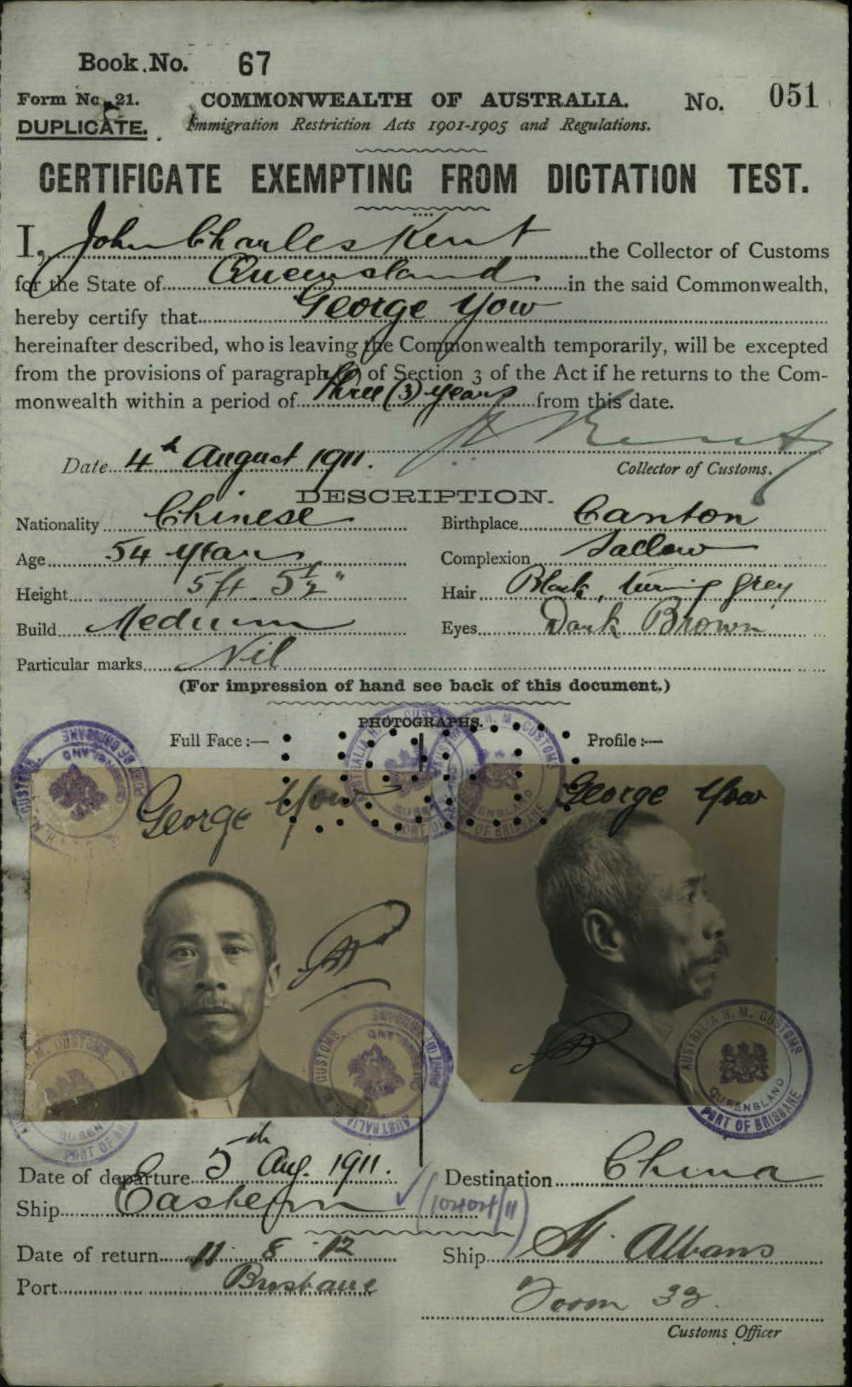 Book No. 67
Form No. 21. COMMONWEALTH OF AUSTRALIA. No. 051
DUPLICATE. Immigration Restriction Acts 1901-1905 and Regulations.
CERTIFICATE EXEMPTING FROM DICTATION TEST.
I, John Charles Kent the Collector of Customs
for the State of Queensland in the said Commonwealth,
hereby certify that George Yow
hereinafter described, who is leaving the Commonwealth temporarily, will be excepted
from the provisions of paragraph of Section 3 of the Act if he returns to the Com-
monwealth within a period of three (3) years from this date.
Date 4th August 1911. J. C. Kent
Collector of Customs.
DESCRIPTION.
Nationality Chinese Birthplace Canton
Age 54 years Complexion Sallow
Height 5ft 5½" Hair Black, turning grey
Build Medium Eyes Dark Brown
Particular marks Nil
(For impression of hand see back of this document.)
PHOTOGRAPHS.
Full Face:— Profile:—
George Yow George Yow
AUSTRALIA H. M. CUSTOMS
QUEENSLAND
PORT OF BRISBANE
Date of departure 5th Aug. 1911. Destination China
Ship Eastern
Date of return 11 8 12 Ship St. Albans
Port Brisbane
32
Customs Officer